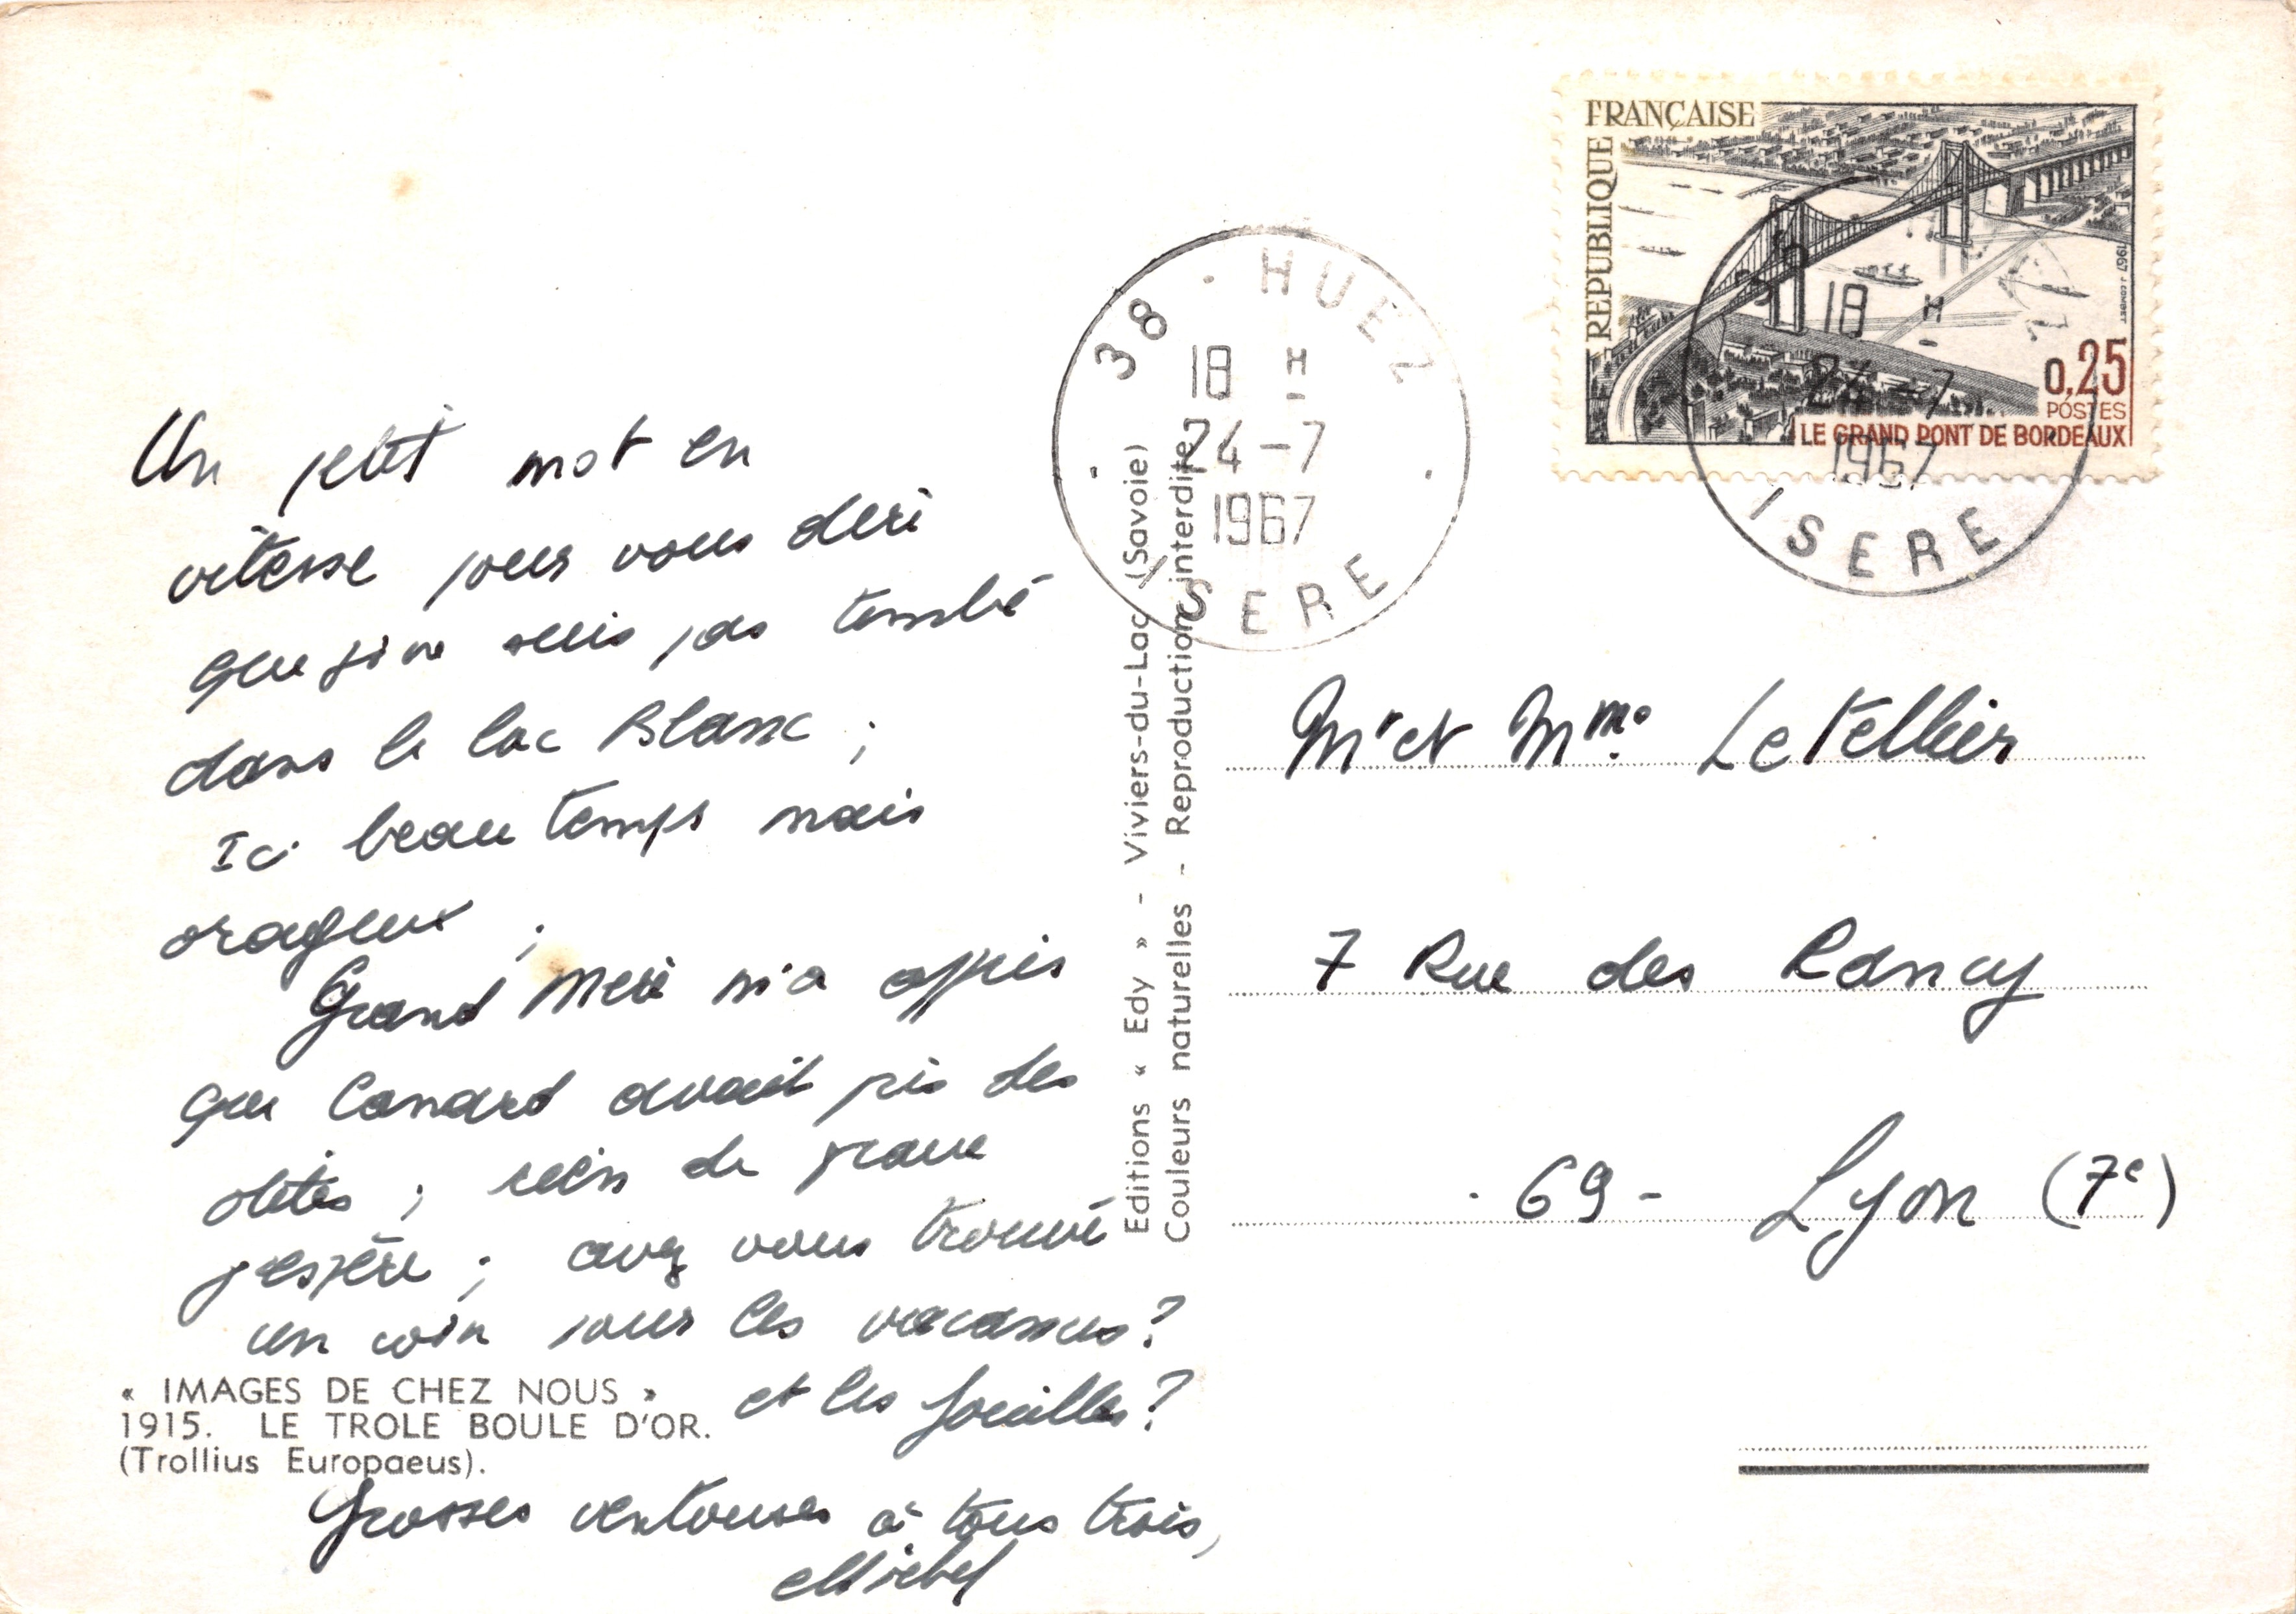 Un petit mot en
vitesse pour vous dire
que je ne suis pas tombé
dans le lac Blanc ;
Ici beau temps mais
orageux ;
Grand Mère m'a appris
que Canard avait pris des
otites ; rien de grave
j'espère ; avez vous trouvé
un coin pour les vacances ?
et les fouilles ?
Grosses ventouses à tous trois,
Michel
« IMAGES DE CHEZ NOUS »
1915. LE TROLE BOULE D'OR.
(Trollius Europaeus).
Editions « Edy » - Viviers-du-Lac (Savoie)
Couleurs naturelles - Reproduction interdite
38 · HUEZ
18 H
24-7
1967
ISERE
REPUBLIQUE FRANÇAISE
1967 J. COMBET
0,25
POSTES
LE GRAND PONT DE BORDEAUX
38
18 H
24-7
1967
ISERE
Mr et Mme Letellier
7 Rue des Rancy
- 69 - Lyon (7e)